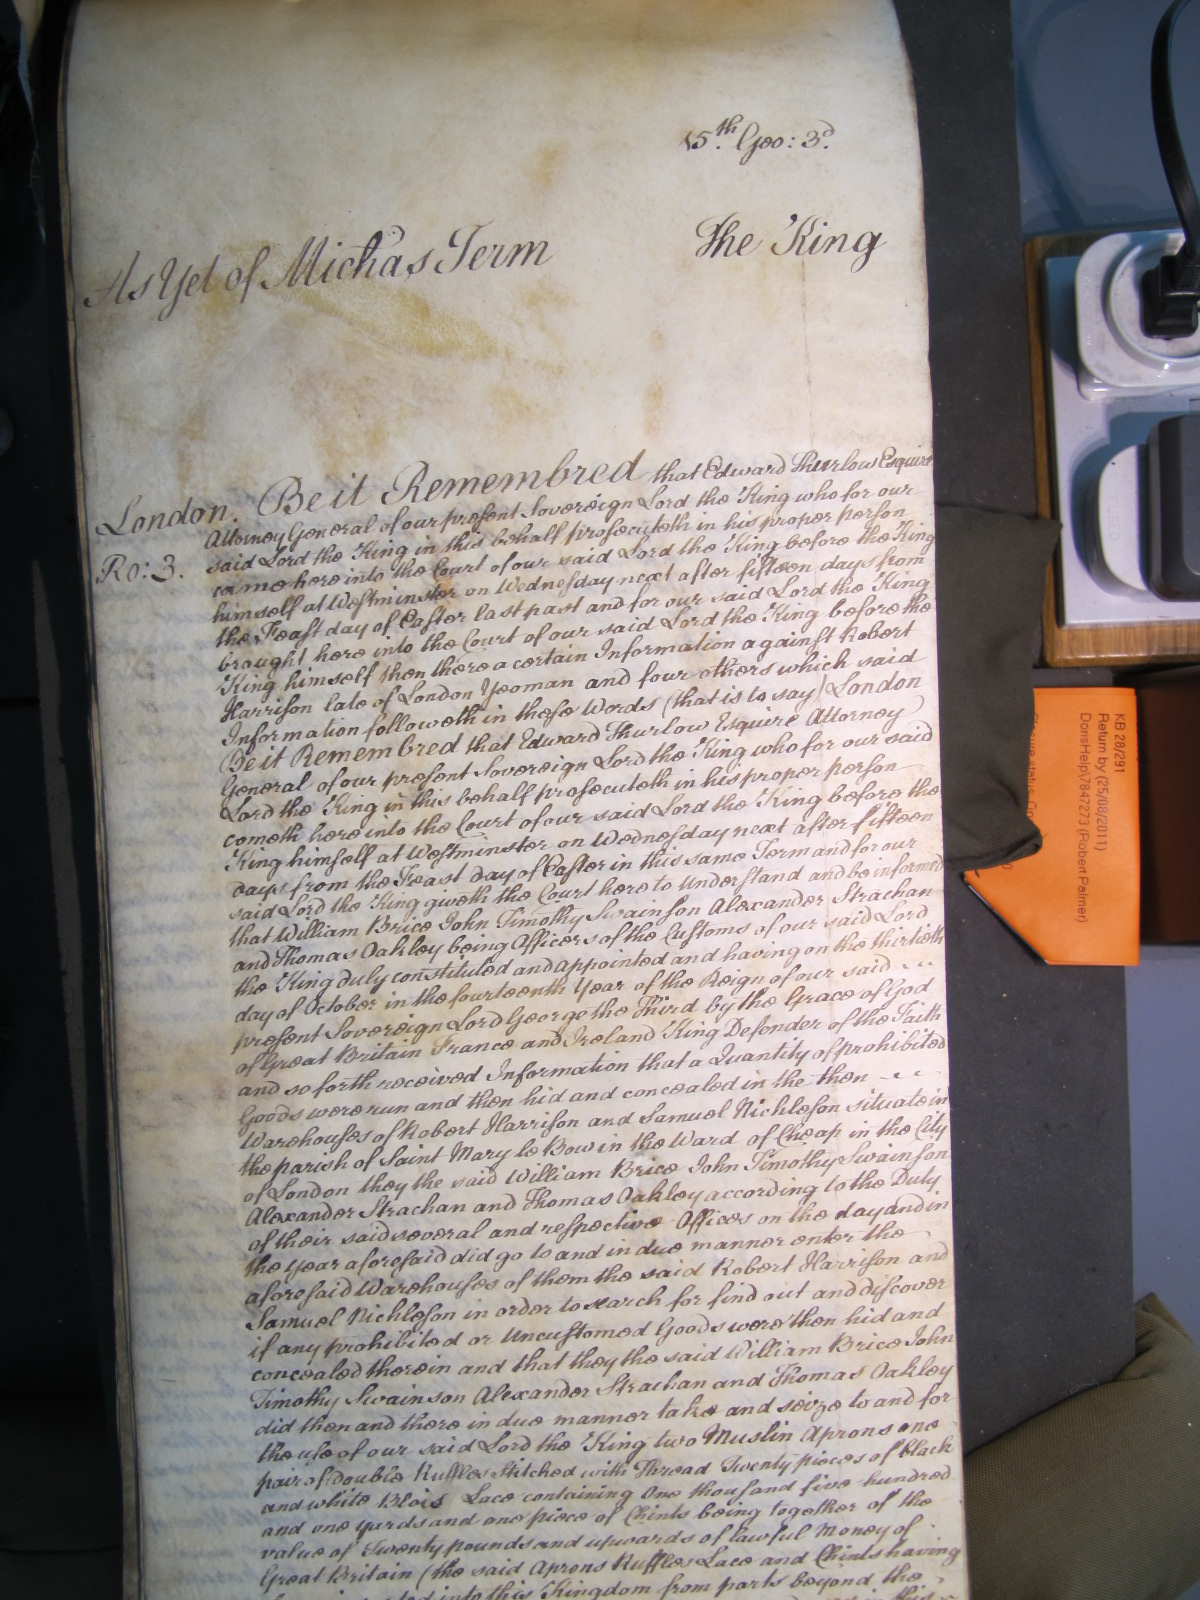 15th. Geo: 3d.
As Yet of Michas Term The King
London. Be it Remembred that Edward Thurlow Esquire
Ro: 3. Attorney General of our present Sovereign Lord the King who for our
said Lord the King in this behalf prosecuteth in his proper person
came here into the Court of our said Lord the King before the King
himself at Westminster on Wednesday next after fifteen days from
the Feast day of Easter last past and for our said Lord the King
brought here into the Court of our said Lord the King before the
King himself then there a certain Information against Robert
Harrison late of London Yeoman and four others which said
Information followeth in these Words (that is to say) London
Be it Remembred that Edward Thurlow Esquire Attorney
General of our present Sovereign Lord the King who for our said
Lord the King in this behalf prosecuteth in his proper person
cometh here into the Court of our said Lord the King before the
King himself at Westminster on Wednesday next after fifteen
days from the Feast day of Easter in this same Term and for our
said Lord the King giveth the Court here to Understand and be informed
that William Brice John Timothy Swainson Alexander Strachan
and Thomas Oakley being Officers of the Customs of our said Lord
the King duly constituted and appointed and having on the thirtieth
day of October in the fourteenth Year of the Reign of our said
present Sovereign Lord George the Third by the Grace of God
of Great Britain France and Ireland King Defender of the Faith
and so forth received Information that a Quantity of prohibited
Goods were run and then hid and concealed in the then
Warehouses of Robert Harrison and Samuel Nickleson situate in
the parish of Saint Mary le Bow in the Ward of Cheap in the City
of London they the said William Brice John Timothy Swainson
Alexander Strachan and Thomas Oakley according to the Duty
of their said several and respective Offices on the day and in
the year aforesaid did go to and in due manner enter the
aforesaid Warehouses of them the said Robert Harrison and
Samuel Nickleson in order to search for find out and discover
if any prohibited or Uncustomed Goods were then hid and
concealed therein and that they the said William Brice John
Timothy Swainson Alexander Strachan and Thomas Oakley
did then and there in due manner take and seize to and for
the use of our said Lord the King two Muslin Aprons one
pair of double Ruffles Stitched with Thread Twenty pieces of black
and white Blois Lace containing One thousand five hundred
and one yards and one piece of Chints being together of the
value of Twenty pounds and upwards of lawful Money of
Great Britain (the said Aprons Ruffles Lace and Chints having
into this Kingdom from parts beyond the
KB 28/291
Return by (25/08/2011)
DorisHelp\7847273 (Robert Palmer)